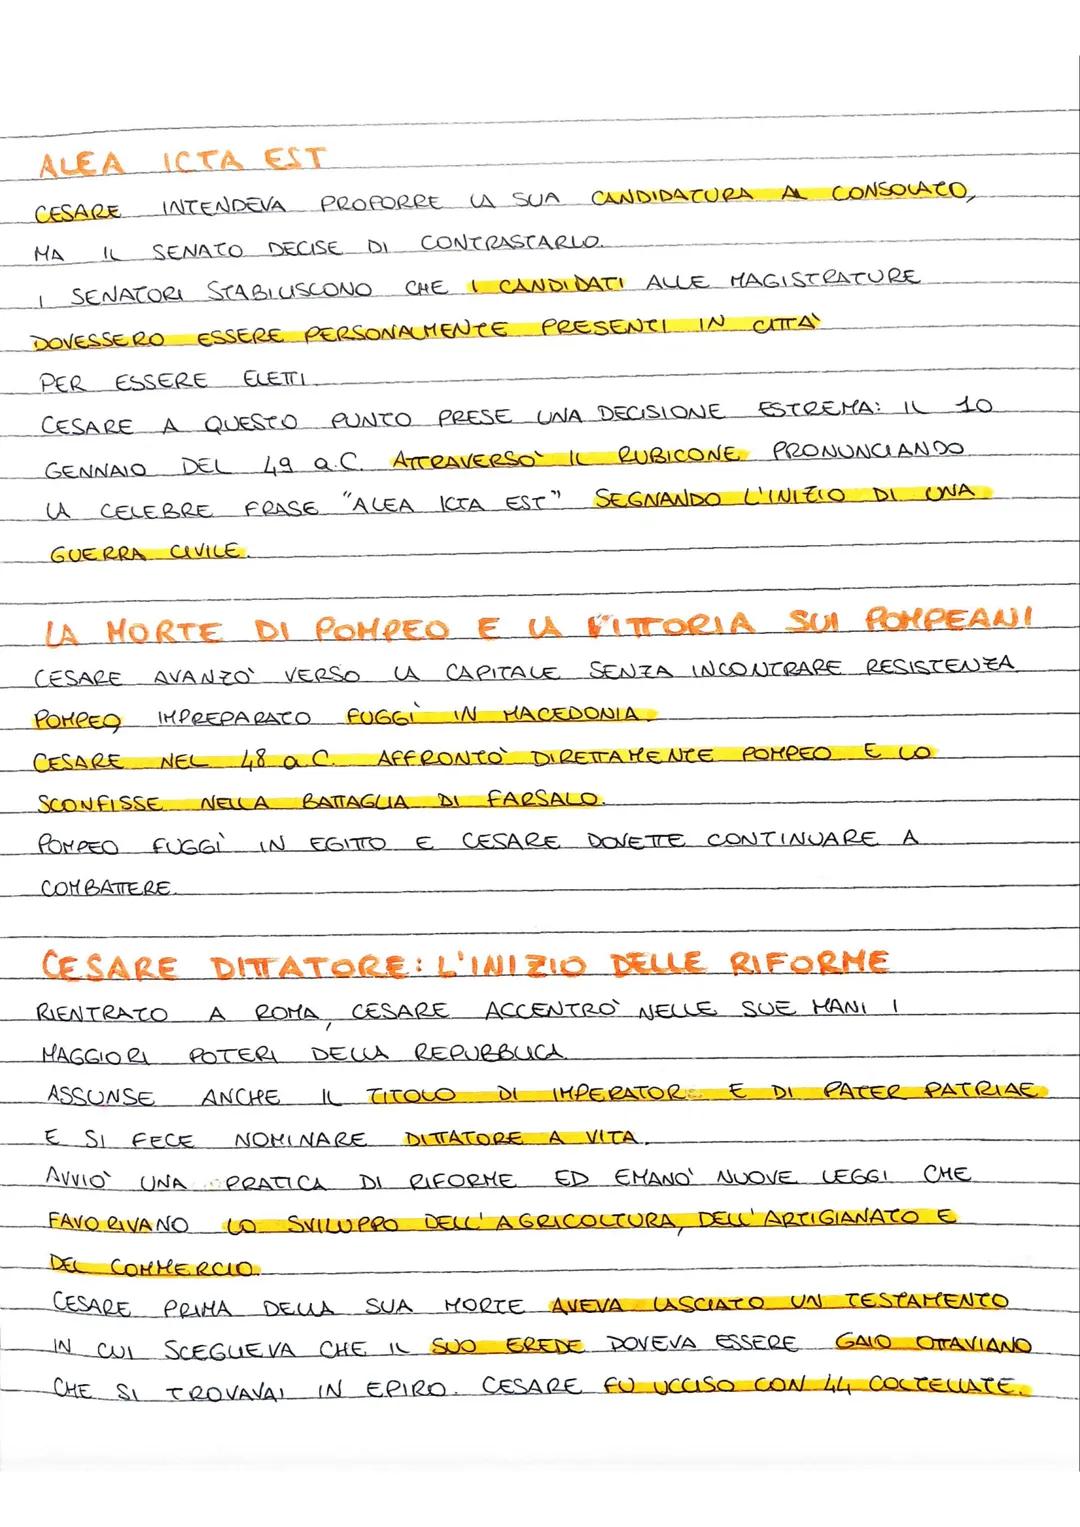 ALEA ICTA EST
CESARE INTENDEVA PROPORRE LA SUA CANDIDATURA AL CONSOLATO,
MA IL SENATO DECISE DI CONTRASTARLO.
I SENATORI STABILISCONO CHE I CANDIDATI ALLE MAGISTRATURE
DOVESSERO ESSERE PERSONALMENTE PRESENTI IN CITTA'
PER ESSERE ELETTI.
CESARE A QUESTO PUNTO PRESE UNA DECISIONE ESTREMA: IL 10
GENNAIO DEL 49 a.C. ATTRAVERSO' IL RUBICONE PRONUNCIANDO
LA CELEBRE FRASE "ALEA ICTA EST" SEGNANDO L'INIZIO DI UNA
GUERRA CIVILE.
LA MORTE DI POMPEO E LA VITTORIA SUI POMPEANI
CESARE AVANZO' VERSO LA CAPITALE SENZA INCONTRARE RESISTENZA
POMPEO IMPREPARATO FUGGI' IN MACEDONIA.
CESARE NEL 48 a.C. AFFRONTO' DIRETTAMENTE POMPEO E LO
SCONFISSE NELLA BATTAGLIA DI FARSALO.
POMPEO FUGGI' IN EGITTO E CESARE DOVETTE CONTINUARE A
COMBATTERE.
CESARE DITTATORE: L'INIZIO DELLE RIFORME
RIENTRATO A ROMA, CESARE ACCENTRO' NELLE SUE MANI I
MAGGIORI POTERI DELLA REPUBBLICA.
ASSUNSE ANCHE IL TITOLO DI IMPERATORE E DI PATER PATRIAE
E SI FECE NOMINARE DITTATORE A VITA.
AVVIO' UNA PRATICA DI RIFORME ED EMANO' NUOVE LEGGI CHE
FAVORIVANO LO SVILUPPO DELL'AGRICOLTURA, DELL'ARTIGIANATO E
DEL COMMERCIO.
CESARE PRIMA DELLA SUA MORTE AVEVA LASCIATO UN TESTAMENTO
IN CUI SCEGLIEVA CHE IL SUO EREDE DOVEVA ESSERE GAIO OTTAVIANO
CHE SI TROVAVAI IN EPIRO. CESARE FU UCCISO CON 44 COLTELLATE.